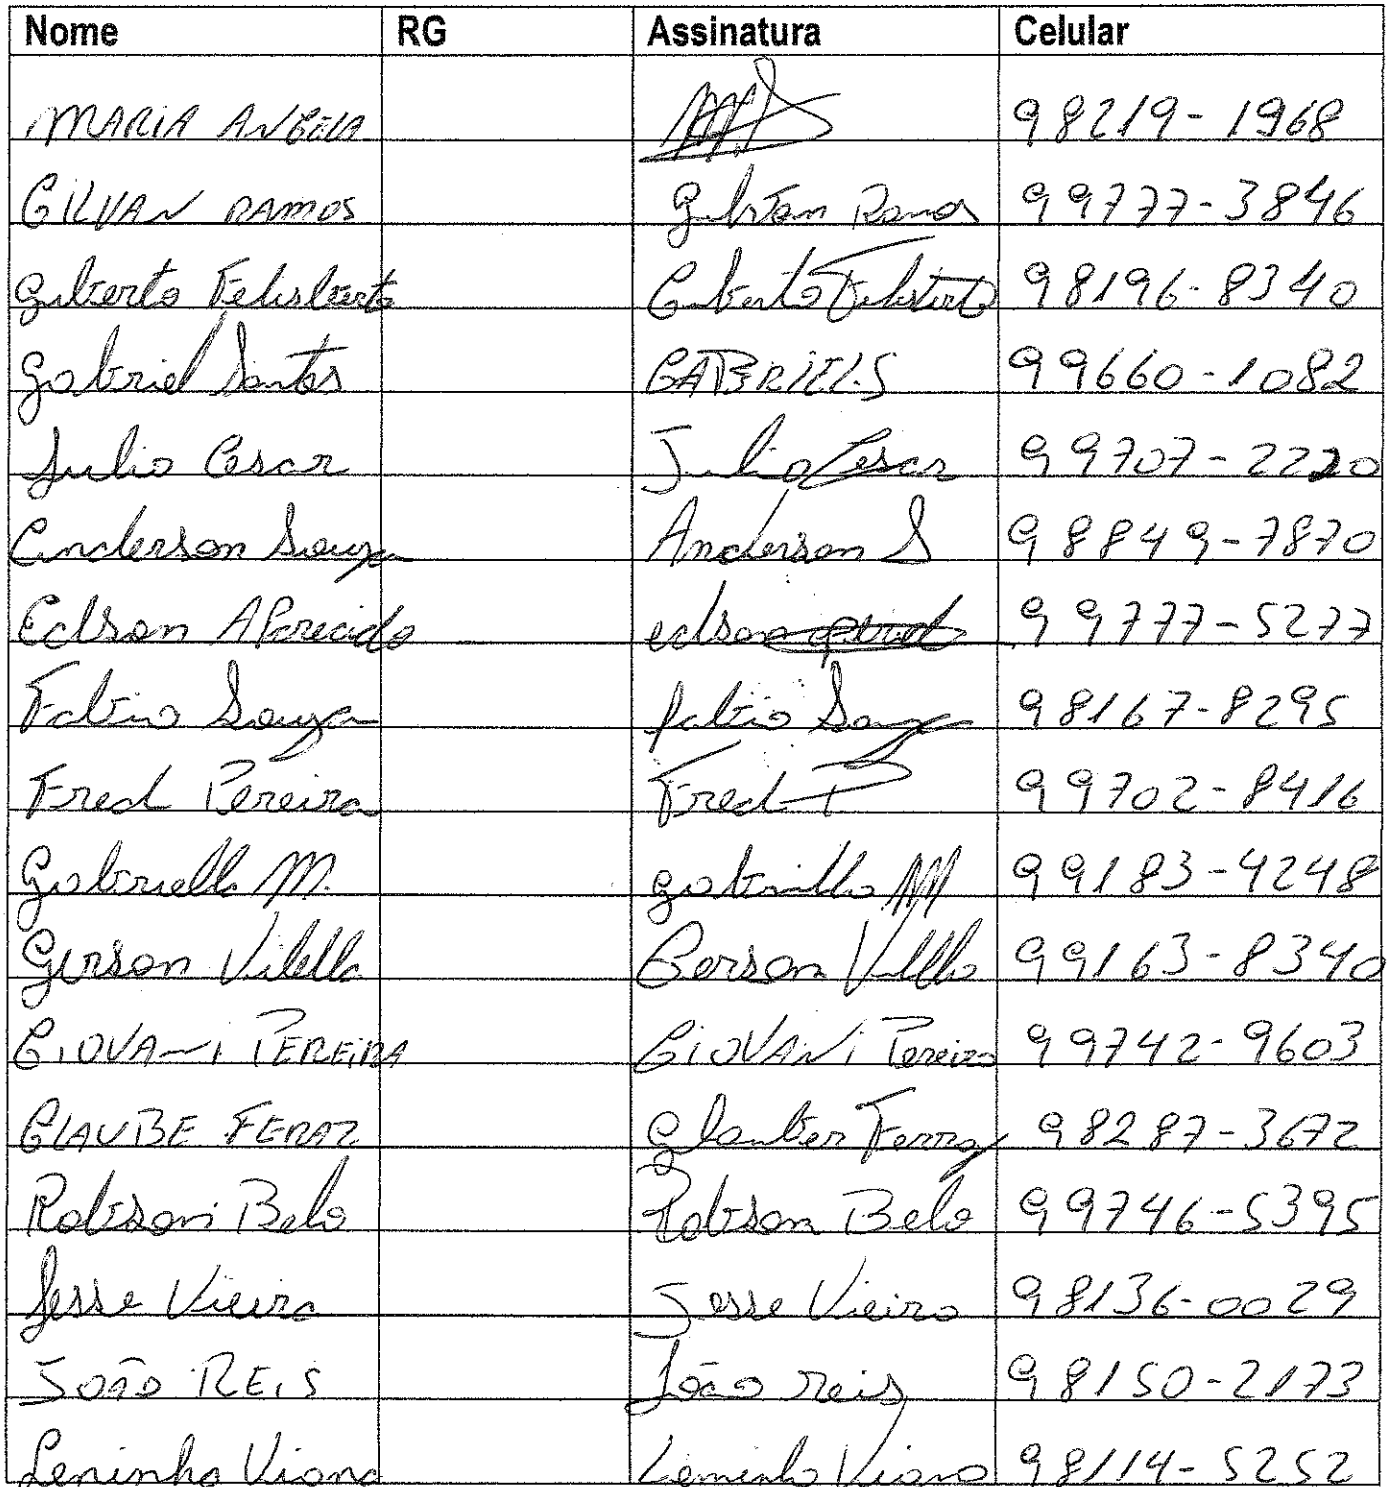 Nome RG Assinatura Celular
MARIA ANGELA 98219-1968
GILVAN RAMOS Gilvan Ramos 99777-3846
Gilberto Felisberto Gilberto Felisberto 98196-8340
Gabriel Santos GABRIEL.S 99660-1082
Julio Cesar Julio Cesar 99707-2220
Anderson Souza Anderson S 98849-7870
Edson Aparecido edson 99777-5277
Fabio Souza fabio Souza 98167-8295
Fred Pereira Fred P 99702-8416
Gabriella M. gabriella M 99183-4248
Gerson Vilella Gerson Vilella 99163-8340
GIOVANI PEREIRA GIOVANI Pereira 99742-9603
GLAUBE FERAZ Glauber Ferraz 98287-3672
Robson Belo Robson Belo 99746-5395
Jesse Vieira Jesse Vieira 98136-0029
JOÃO REIS João reis 98150-2173
Leninha Viana Leninha Viana 98114-5252